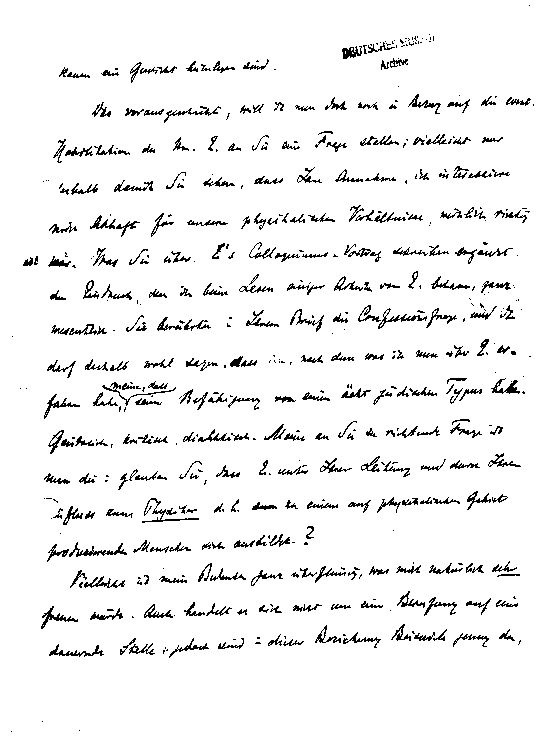 DEUTSCHES MUSEUM
Archive
kaum ein Gewicht beizulegen sind.
Dies vorausgeschickt, will ich nun doch noch in Bezug auf die event.
Habilitation des Hn. E. an Sie eine Frage stellen; vielleicht nur
deshalb damit Sie sehen, dass Ihre Annahme, ich interessiere
mich lebhaft für unsere physikalischen Verhältnisse, wirklich richtig
ist. Was Sie über E's Colloquiums-Vortrag schreiben ergänzt
den Eindruck, den ich beim Lesen einiger Arbeiten von E. bekam, ganz
wesentlich. Sie berührten in Ihrem Brief die Confessionsfrage, und ich
darf deshalb wohl sagen, dass ich, nach dem was ich nun über E. er-
fahren habe, meine, dass seine Befähigung von einem ächt jüdischen Typus
Geistreich, kritisch, dialektisch. Meine an Sie zu richtende Frage ist
nun die: glauben Sie, dass E. unter Ihrer Leitung und durch Ihren
Einfluss zum Physiker d.h. zu einem auf physikalischem Gebiet
produzierenden Menschen sich ausbildet?
Vielleicht ist mein Bedenken ganz überflüssig, was mich natürlich sehr
freuen würde. Auch handelt es sich nicht um eine Berufung auf eine
dauernde Stelle; jedoch sind in dieser Beziehung Beispiele genug da,